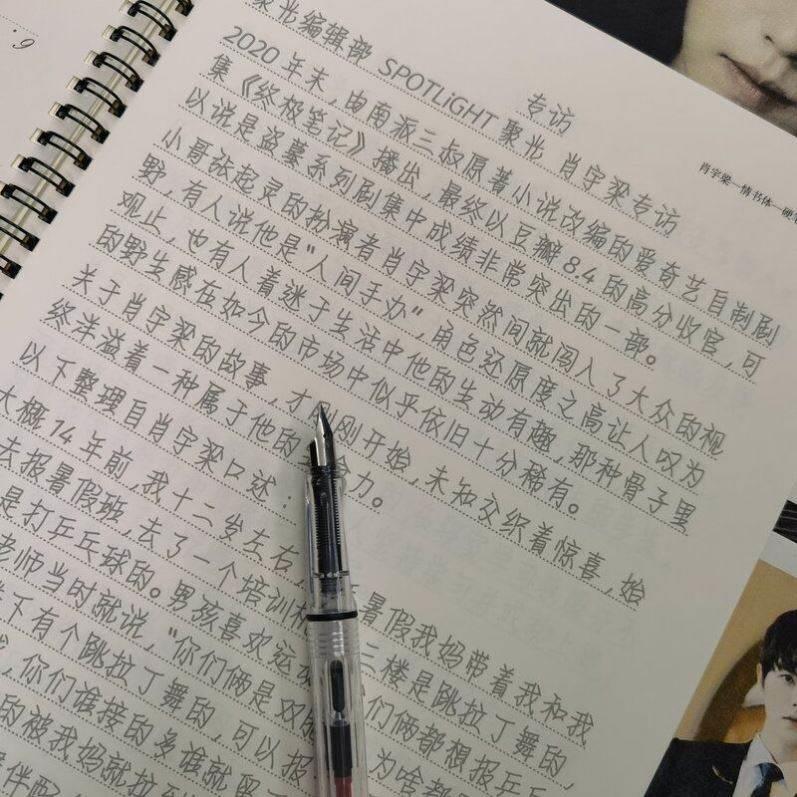 专访
聚光编辑部 SPOTLiGHT 聚光 肖宇梁专访
2020年末,由南派三叔原著小说改编的爱奇艺自制剧
集《终极笔记》播出,最终以豆瓣8.4的高分收官,可
以说是盗墓系列剧集中成绩非常突出的一部。
小哥张起灵的扮演者肖宇梁突然间就闯入了大众的视
野,有人说他是"人间手办",角色还原度之高让人叹为
观止,也有人着迷于生活中他的生动有趣,那种骨子里
的野生感在如今的市场中似乎依旧十分稀有。
关于肖宇梁的故事,才刚刚开始,未知交织着惊喜,始
终洋溢着一种属于他的 力。
以下整理自肖宇梁口述:
大概14年前,我十二岁左右, 暑假我妈带着我和我
去报暑假班,去了一个培训 三楼是跳拉丁舞的,
是打乒乓球的。男孩喜欢运 们俩都想报乒乓
老师当时就说,"你们俩是双 为啥都
下有个跳拉丁舞的,可以报
,你们谁接的多谁就留
的被我妈就拉
肖宇梁—情书体—硬笔